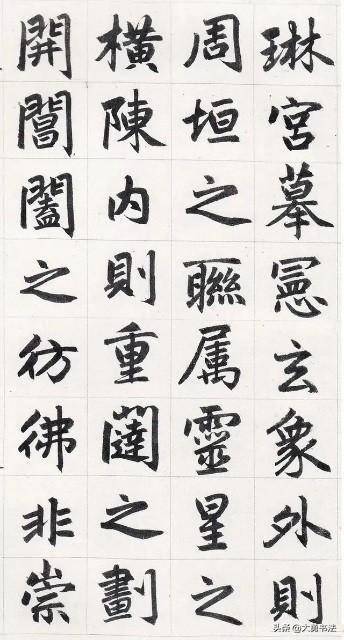 琳宮摹憲玄象外則
周垣之聯属靈星之
橫陳内則重闥之劃
開閶闔之彷彿非崇
头条 @大勇书法